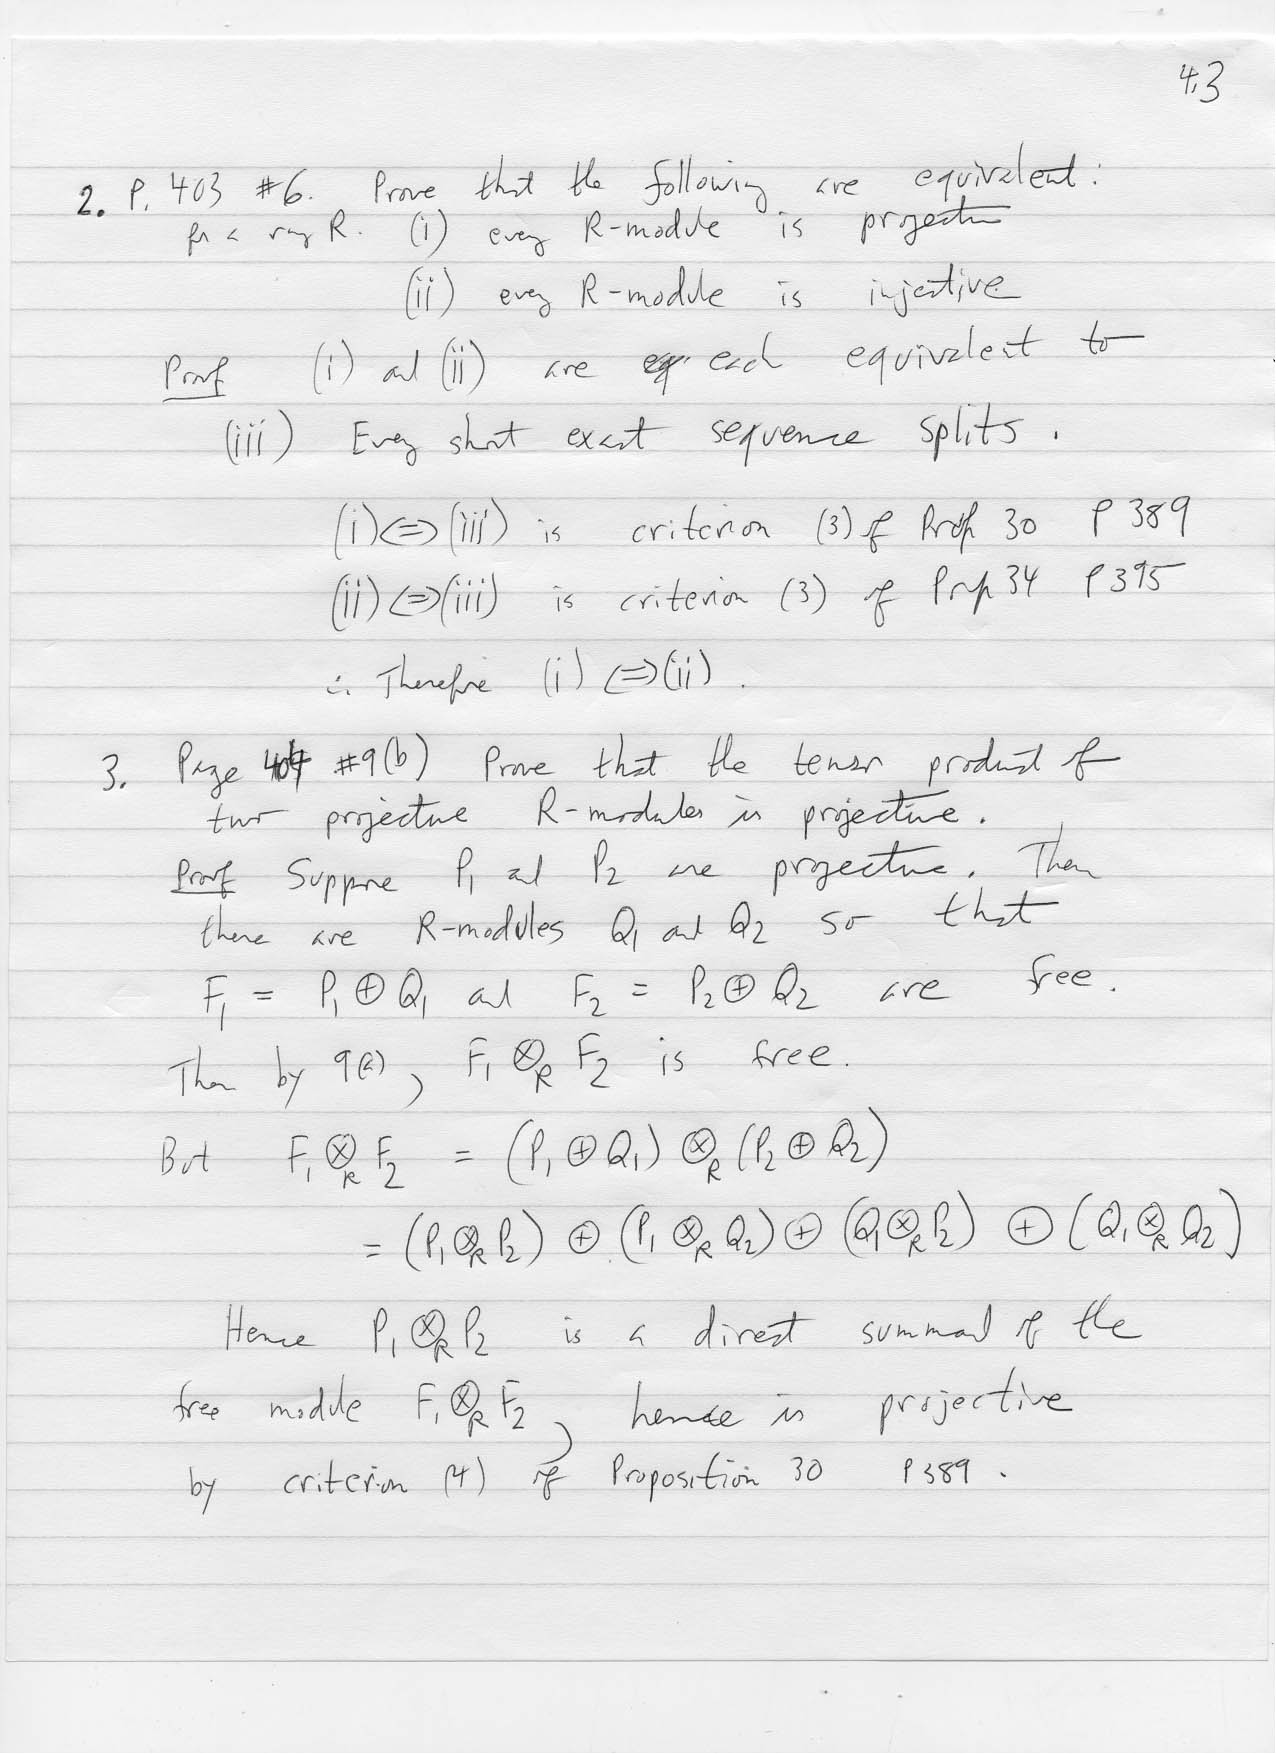 4.3
2. P. 403 #6. Prove that the following are equivalent:
for a ring R. (i) every R-module is projective
(ii) every R-module is injective
Proof (i) and (ii) are each equivalent to
(iii) Every short exact sequence splits.
(i)⇔(iii) is criterion (3) of Prop 30 P 389
(ii)⇔(iii) is criterion (3) of Prop 34 P 395
∴ Therefore (i) ⇔ (ii).
3. Page 404 #9(b) Prove that the tensor product of
two projective R-modules is projective.
Proof Suppose P₁ and P₂ are projective. Then
there are R-modules Q₁ and Q₂ so that
F₁ = P₁ ⊕ Q₁ and F₂ = P₂ ⊕ Q₂ are free.
Then by 9(a), F₁ ⊗_R F₂ is free.
But F₁ ⊗_R F₂ = (P₁ ⊕ Q₁) ⊗_R (P₂ ⊕ Q₂)
= (P₁ ⊗_R P₂) ⊕ (P₁ ⊗_R Q₂) ⊕ (Q₁ ⊗_R P₂) ⊕ (Q₁ ⊗_R Q₂)
Hence P₁ ⊗_R P₂ is a direct summand of the
free module F₁ ⊗_R F₂, hence is projective
by criterion (4) of Proposition 30 P 389.